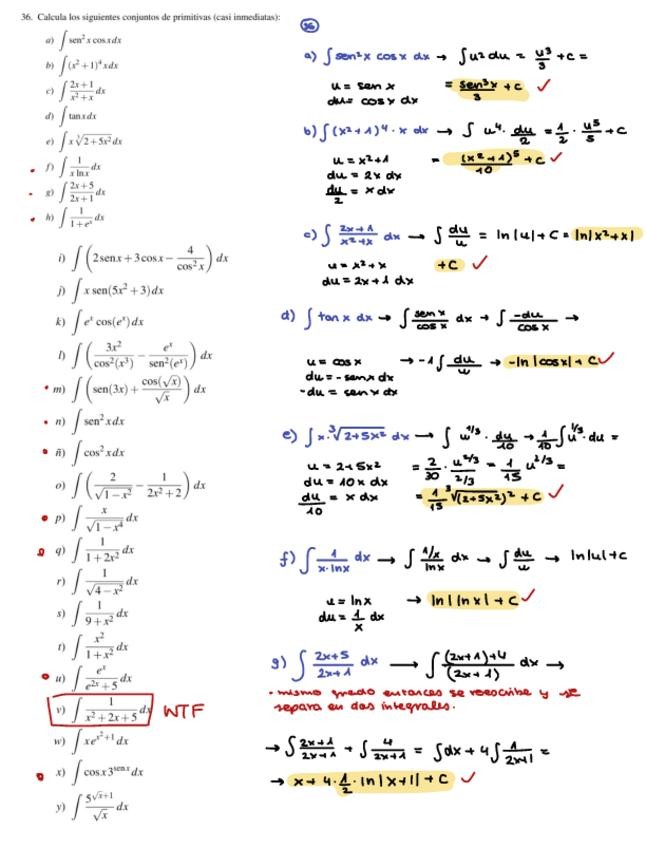 36. Calcula los siguientes conjuntos de primitivas (casi inmediatas):
a) ∫ sen² x cos x dx
b) ∫ (x² + 1)⁴ x dx
c) ∫ (2x+1)/(x²+x) dx
d) ∫ tan x dx
e) ∫ x ∛(2+5x²) dx
f) ∫ 1/(x ln x) dx
g) ∫ (2x+5)/(2x+1) dx
h) ∫ 1/(1+eˣ) dx
i) ∫ (2senx + 3cosx − 4/cos² x) dx
j) ∫ x sen(5x² + 3) dx
k) ∫ eˣ cos(eˣ) dx
l) ∫ (3x²/cos²(x³) − eˣ/sen²(eˣ)) dx
m) ∫ (sen(3x) + cos(√x)/√x) dx
n) ∫ sen² x dx
ñ) ∫ cos² x dx
o) ∫ (2/√(1−x²) − 1/(2x²+2)) dx
p) ∫ x/√(1−x⁴) dx
q) ∫ 1/(1+2x²) dx
r) ∫ 1/√(4−x²) dx
s) ∫ 1/(9+x²) dx
t) ∫ x²/(1+x²) dx
u) ∫ eˣ/(e²ˣ+5) dx
v) ∫ 1/(x²+2x+5) dx WTF
w) ∫ xe^(x²+1) dx
x) ∫ cos x 3^(sen x) dx
y) ∫ 5^(√x+1)/√x dx
36
a) ∫ sen²x cosx dx → ∫ u² du = u³/3 + c =
u = sen x = sen³x/3 + c ✓
du = cosx dx
b) ∫ (x²+1)⁴ · x dx → ∫ u⁴ · du/2 = 1/2 · u⁵/5 + c
u = x²+1 = (x²+1)⁵/10 + c ✓
du = 2x dx
du/2 = x dx
c) ∫ (2x+1)/(x²+x) dx → ∫ du/u = ln|u| + c = ln|x²+x|
u = x²+x +c ✓
du = 2x+1 dx
d) ∫ tan x dx → ∫ sen x/cos x dx → ∫ -du/cos x →
u = cosx → -1 ∫ du/u → -ln|cosx| + c ✓
du = -senx dx
-du = senx dx
e) ∫ x·∛(2+5x²) dx → ∫ u^(1/3) · du/10 → 1/10 ∫ u^(1/3) · du =
u = 2+5x² = 2/30 · u^(2/3)/(2/3) = 1/15 u^(2/3) =
du = 10x dx
du/10 = x dx = 1/15 ∛((2+5x²)²) + c ✓
f) ∫ 1/(x·lnx) dx → ∫ (1/x)/lnx dx → ∫ du/u → ln|u| + c
u = lnx → ln|lnx| + c ✓
du = 1/x dx
g) ∫ (2x+5)/(2x+1) dx → ∫ ((2x+1)+4)/(2x+1) dx →
· mismo grado entonces se reescribe y se
separa en dos integrales.
→ ∫ (2x+1)/(2x+1) + ∫ 4/(2x+1) = ∫ dx + 4 ∫ 1/(2x+1) =
→ x + 4 · 1/2 · ln|x+1| + c ✓